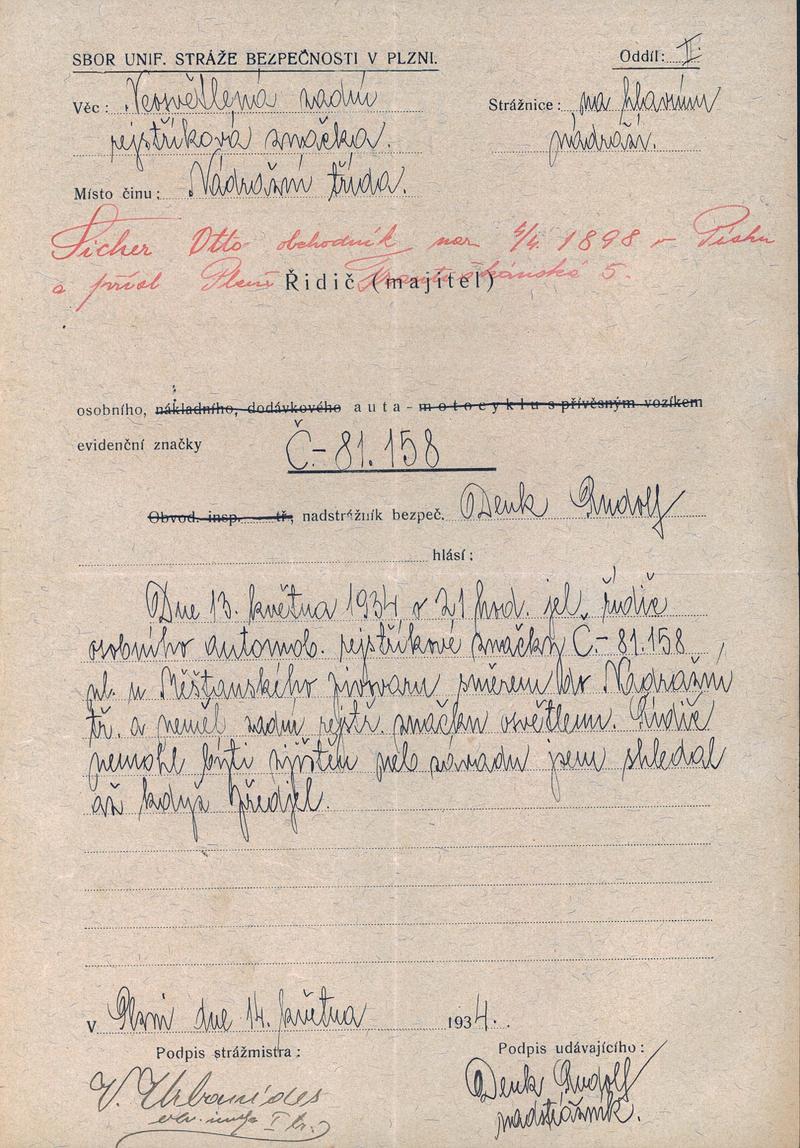 SBOR UNIF. STRÁŽE BEZPEČNOSTI V PLZNI.
Oddíl: II.
Věc: Neosvětlená zadní
rejstříková značka.
Strážnice: na hlavním
nádraží.
Místo činu: Nádražní třída.
Sicher Otto obchodník nar 4/4. 1898 v Písku
a přísl Plzni Františkánská 5.
Řidič (majitel)
osobního, nákladního, dodávkového auta-motocyklu s přívěsným vozíkem
evidenční značky Č-81.158
Obvod. insp. tř., nadstrážník bezpeč. Denk Rudolf
hlásí:
Dne 13. května 1934 v 21 hod. jel řidič
osobního automob. rejstříkové značky Č.-81.158,
ul. u Měšťanského pivovaru směrem do Nádražní
tř. a neměl zadní rejstř. značku osvětlenu. Řidič
nemohl býti zjištěn neb závadu jsem shledal
až když předjel.
v Plzni dne 14. května 1934.
Podpis strážmistra:
Podpis udávajícího:
V. Urbanides
Denk Rudolf
nadstrážník.